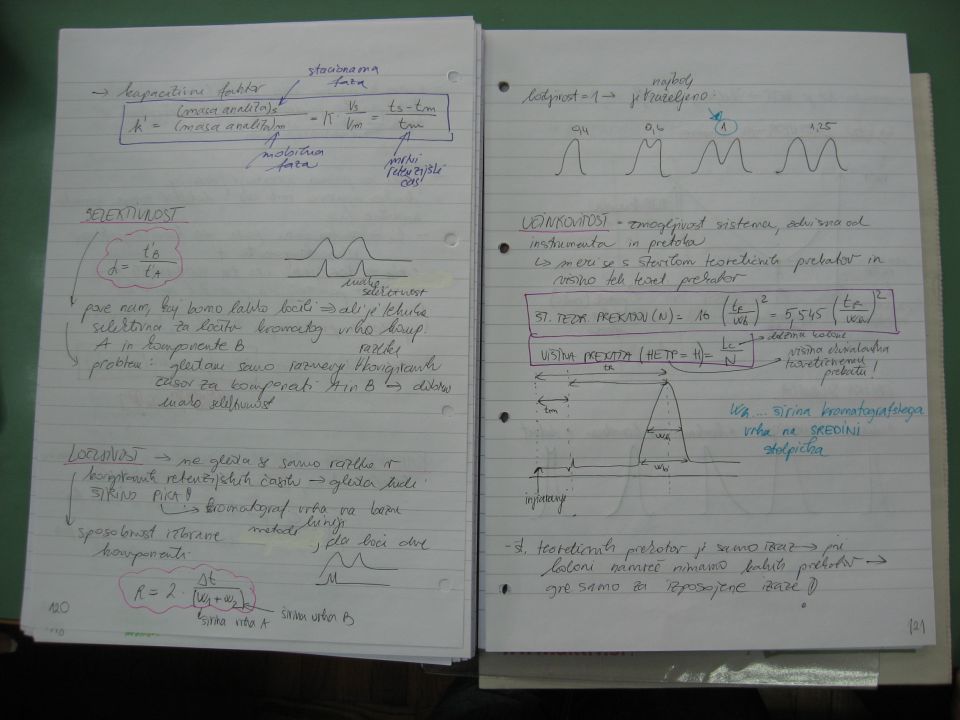 → kapacitivni faktor
stacionarna
faza
k' = (masa analita)s / (masa analita)m = K · Vs / Vm = ts - tm / tm
mobilna
faza
mrtvi
retenzijski
čas
SELEKTIVNOST
α = t'B / t'A
malo
selektivnost
pove nam, kaj bomo lahko ločili → ali je tehnika
selektivna za ločitev kromatog. vrhov komp.
A in komponente B
razlike
problem: gledam samo razmerji korigiranih
časov za komponenti A in B → dobim
malo selektivnost
LOČLJIVOST → ne gleda se samo razlika v
korigiranih retenzijskih časih → gleda tudi
ŠIRINO PIKA!
kromatograf. vrha na bazni
liniji
sposobnost izbrane metode, da loči dve
komponenti
R = 2 · Δt / [w1 + w2]
širina vrha A
širina vrha B
120
najbolj
ločljivost = 1 → je zaželjeno:
0,4 0,6 1 1,25
UČINKOVITOST = zmogljivost sistema, odvisna od
instrumenta in pretoka
↳ meri se s številom teoretičnih prekatov in
višino teh teoret. prekatov
ŠT. TEOR. PREKATOV (N) = 16 (tR / wb)² = 5,545 (tR / wh)²
VIŠINA PREKATA (HETP = H) = Lc / N
dolžina kolone
višina ekvivalentna
teoretičnemu
prekatu!
tR
tm
wh
wb
injiciranje
wh ... širina kromatografskega
vrha na SREDINI
stolpiča
- št. teoretičnih prekatov je samo izraz → pri
koloni namreč nimamo kakih prekatov →
gre samo za izposojene izraze!
121